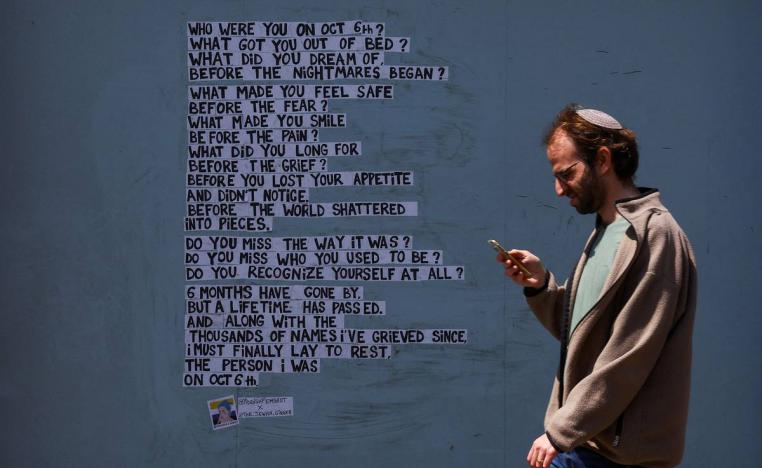 WHO WERE YOU ON OCT 6th?
WHAT GOT YOU OUT OF BED?
WHAT DID YOU DREAM OF,
BEFORE THE NIGHTMARES BEGAN?
WHAT MADE YOU FEEL SAFE
BEFORE THE FEAR?
WHAT MADE YOU SMILE
BEFORE THE PAIN?
WHAT DID YOU LONG FOR
BEFORE THE GRIEF?
BEFORE YOU LOST YOUR APPETITE
AND DIDN'T NOTICE.
BEFORE THE WORLD SHATTERED
INTO PIECES.
DO YOU MISS THE WAY IT WAS?
DO YOU MISS WHO YOU USED TO BE?
DO YOU RECOGNIZE YOURSELF AT ALL?
6 MONTHS HAVE GONE BY,
BUT A LIFETIME HAS PASSED.
AND ALONG WITH THE
THOUSANDS OF NAMES I'VE GRIEVED SINCE,
I MUST FINALLY LAY TO REST,
THE PERSON I WAS
ON OCT 6th.
X